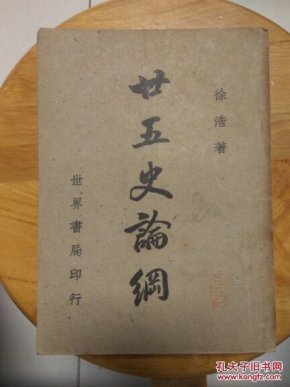 徐浩著
廿五史論綱
世界書局印行
孔夫子旧书网